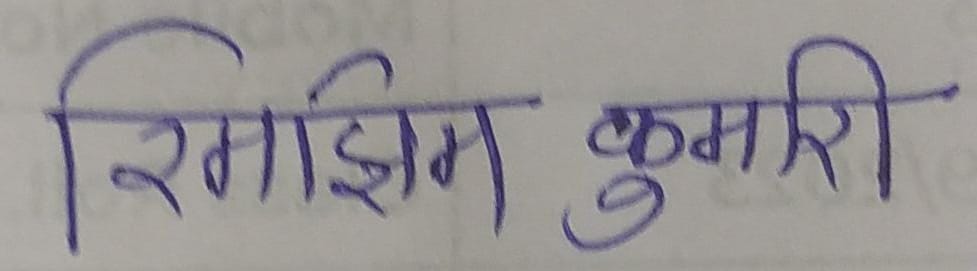 रिमझिम कुमारी